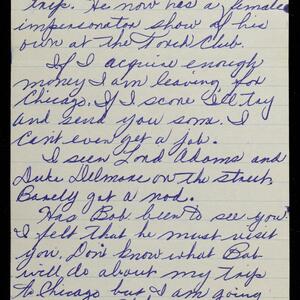 trip. He now has a female
impersonator show of his
own at the Torch Club.
If I acquire enough
money I am leaving for
Chicago. If I score I'll try
and send you some. I
can't even get a job.
I seen Lord Adams and
Duke Delmore on the street.
Barely got a nod.
Has Bob been to see you.
I felt that he must visit
you. Don't know what Bob
will do about my trip
to Chicago but I am going